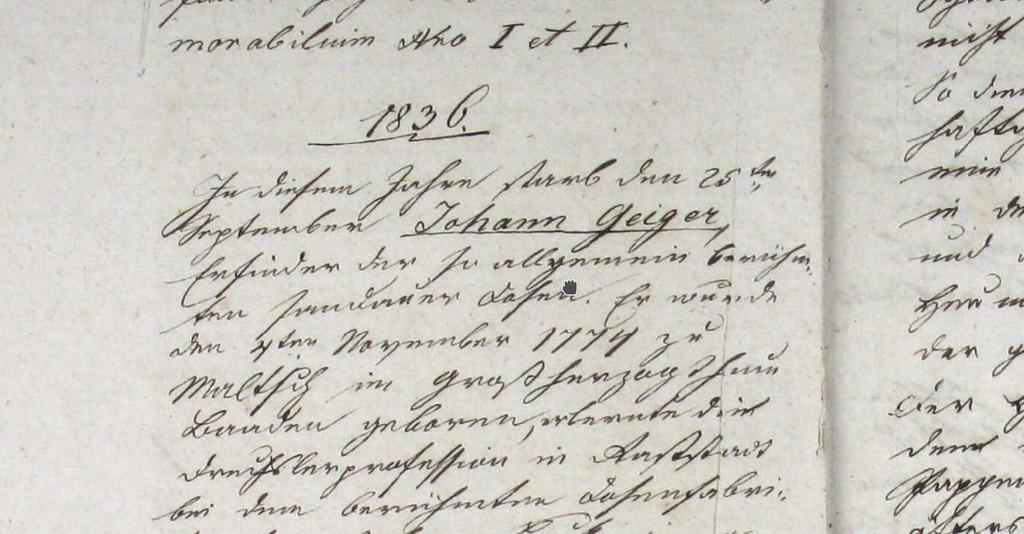 morabilium Nro I et II.
1836.
In diesem Jahre starb den 25ten
September Johann Geiger,
Erfinder der so allgemein berühm-
ten sandauer Dosen. Er wurde
den 7ten November 1774 zu
Maltsch im Großherzogthum
Baaden geboren, erlernte die
Drechslerprofession in Raststadt
bei dem berühmten Dosenfabri-
nicht
So
haft
eine
in
und
der
Der
dem
öfters